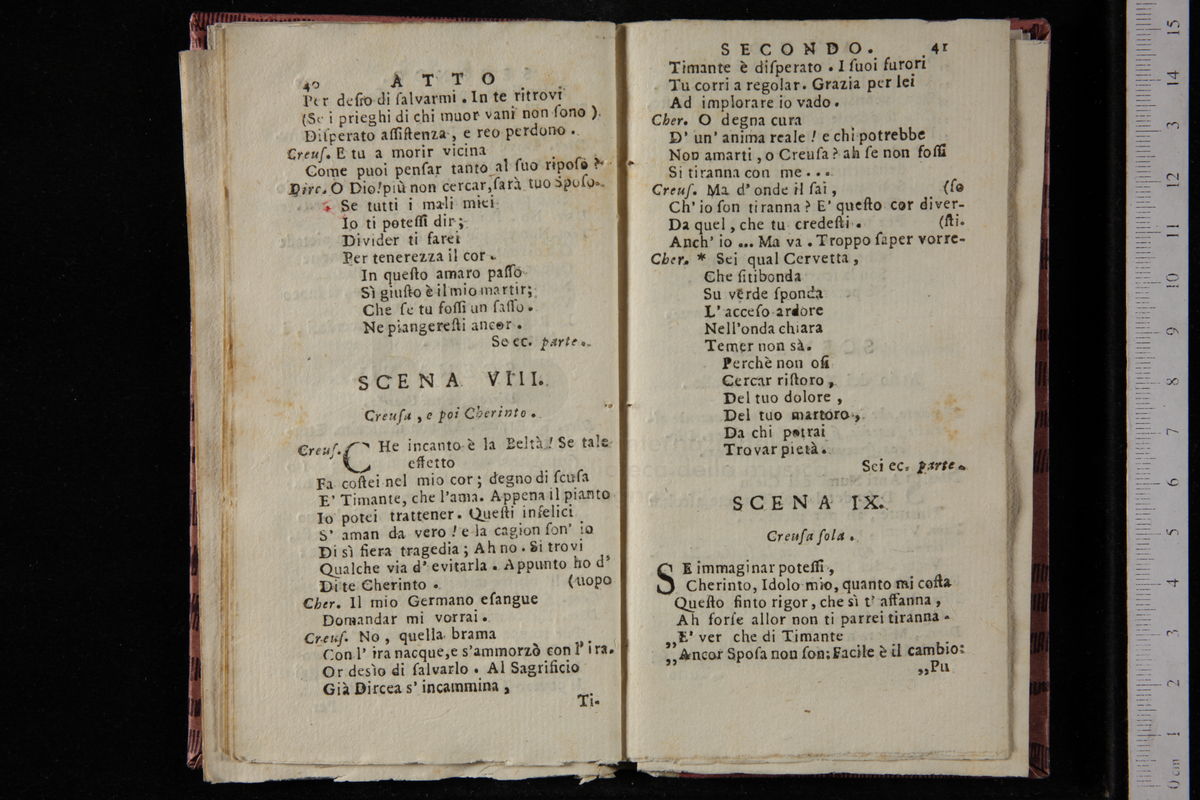 40 ATTO
Per desio di salvarmi . In te ritrovi
(Se i prieghi di chi muor vani non sono )
Disperato assistenza , e reo perdono .
Creus. E tu a morir vicina
Come puoi pensar tanto al suo riposo ?
Dirc. O Dio! più non cercar, sarà tuo Sposo.
Se tutti i mali miei
Io ti potessi dir ;
Divider ti farei
Per tenerezza il cor .
In questo amaro passo
Sì giusto è il mio martir;
Che se tu fossi un sasso .
Ne piangeresti ancor .
Se ec. parte .
SCENA VIII.
Creusa , e poi Cherinto .
Creus. CHe incanto è la Beltà ! Se tale
effetto
Fa costei nel mio cor ; degno di scusa
E' Timante, che l'ama. Appena il pianto
Io potei trattener. Questi infelici
S' aman da vero ! e la cagion son' io
Di sì fiera tragedia ; Ah no . Si trovi
Qualche via d' evitarla . Appunto ho d'
Di te Cherinto . (uopo
Cher. Il mio Germano esangue
Domandar mi vorrai .
Creus. No , quella brama
Con l' ira nacque, e s'ammorzò con l' ira.
Or desìo di salvarlo . Al Sagrificio
Già Dircea s' incammina ,
Ti-
SECONDO. 41
Timante è disperato . I suoi furori
Tu corri a regolar. Grazia per lei
Ad implorare io vado .
Cher. O degna cura
D' un' anima reale ! e chi potrebbe
Non amarti , o Creusa ? ah se non fossi
Si tiranna con me ...
Creus. Ma d' onde il sai , (so
Ch' io son tiranna ? E' questo cor diver-
Da quel , che tu credesti . (sti.
Anch' io ... Ma va . Troppo saper vorre-
Cher. * Sei qual Cervetta ,
Che sitibonda
Su verde sponda
L' acceso ardore
Nell'onda chiara
Temer non sà .
Perchè non osi
Cercar ristoro ,
Del tuo dolore ,
Del tuo martoro ,
Da chi potrai
Trovar pietà .
Sei ec. parte .
SCENA IX.
Creusa sola .
SE immaginar potessi ,
Cherinto, Idolo mio, quanto mi costa
Questo finto rigor, che sì t' affanna ,
Ah forse allor non ti parrei tiranna .
„E' ver che di Timante
„Ancor Sposa non son: Facile è il cambio:
„Pu